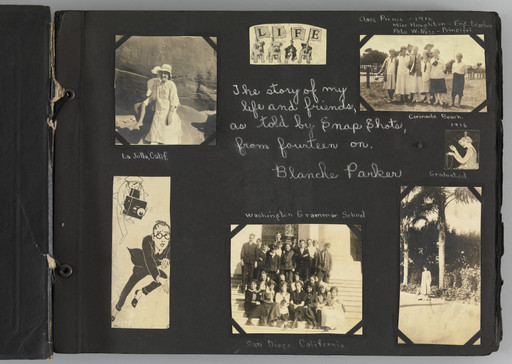 LIFE
Class Picnic - 1916
Miss Houghton - Eng. Teacher
Pete W. Ross - Principal
The story of my
life and friends,
as told by Snap Shots,
from fourteen on.
Blanche Parker
La Jolla, Calif.
Coronado Beach.
1916
Graduated
Washington Grammar School
San Diego, California.